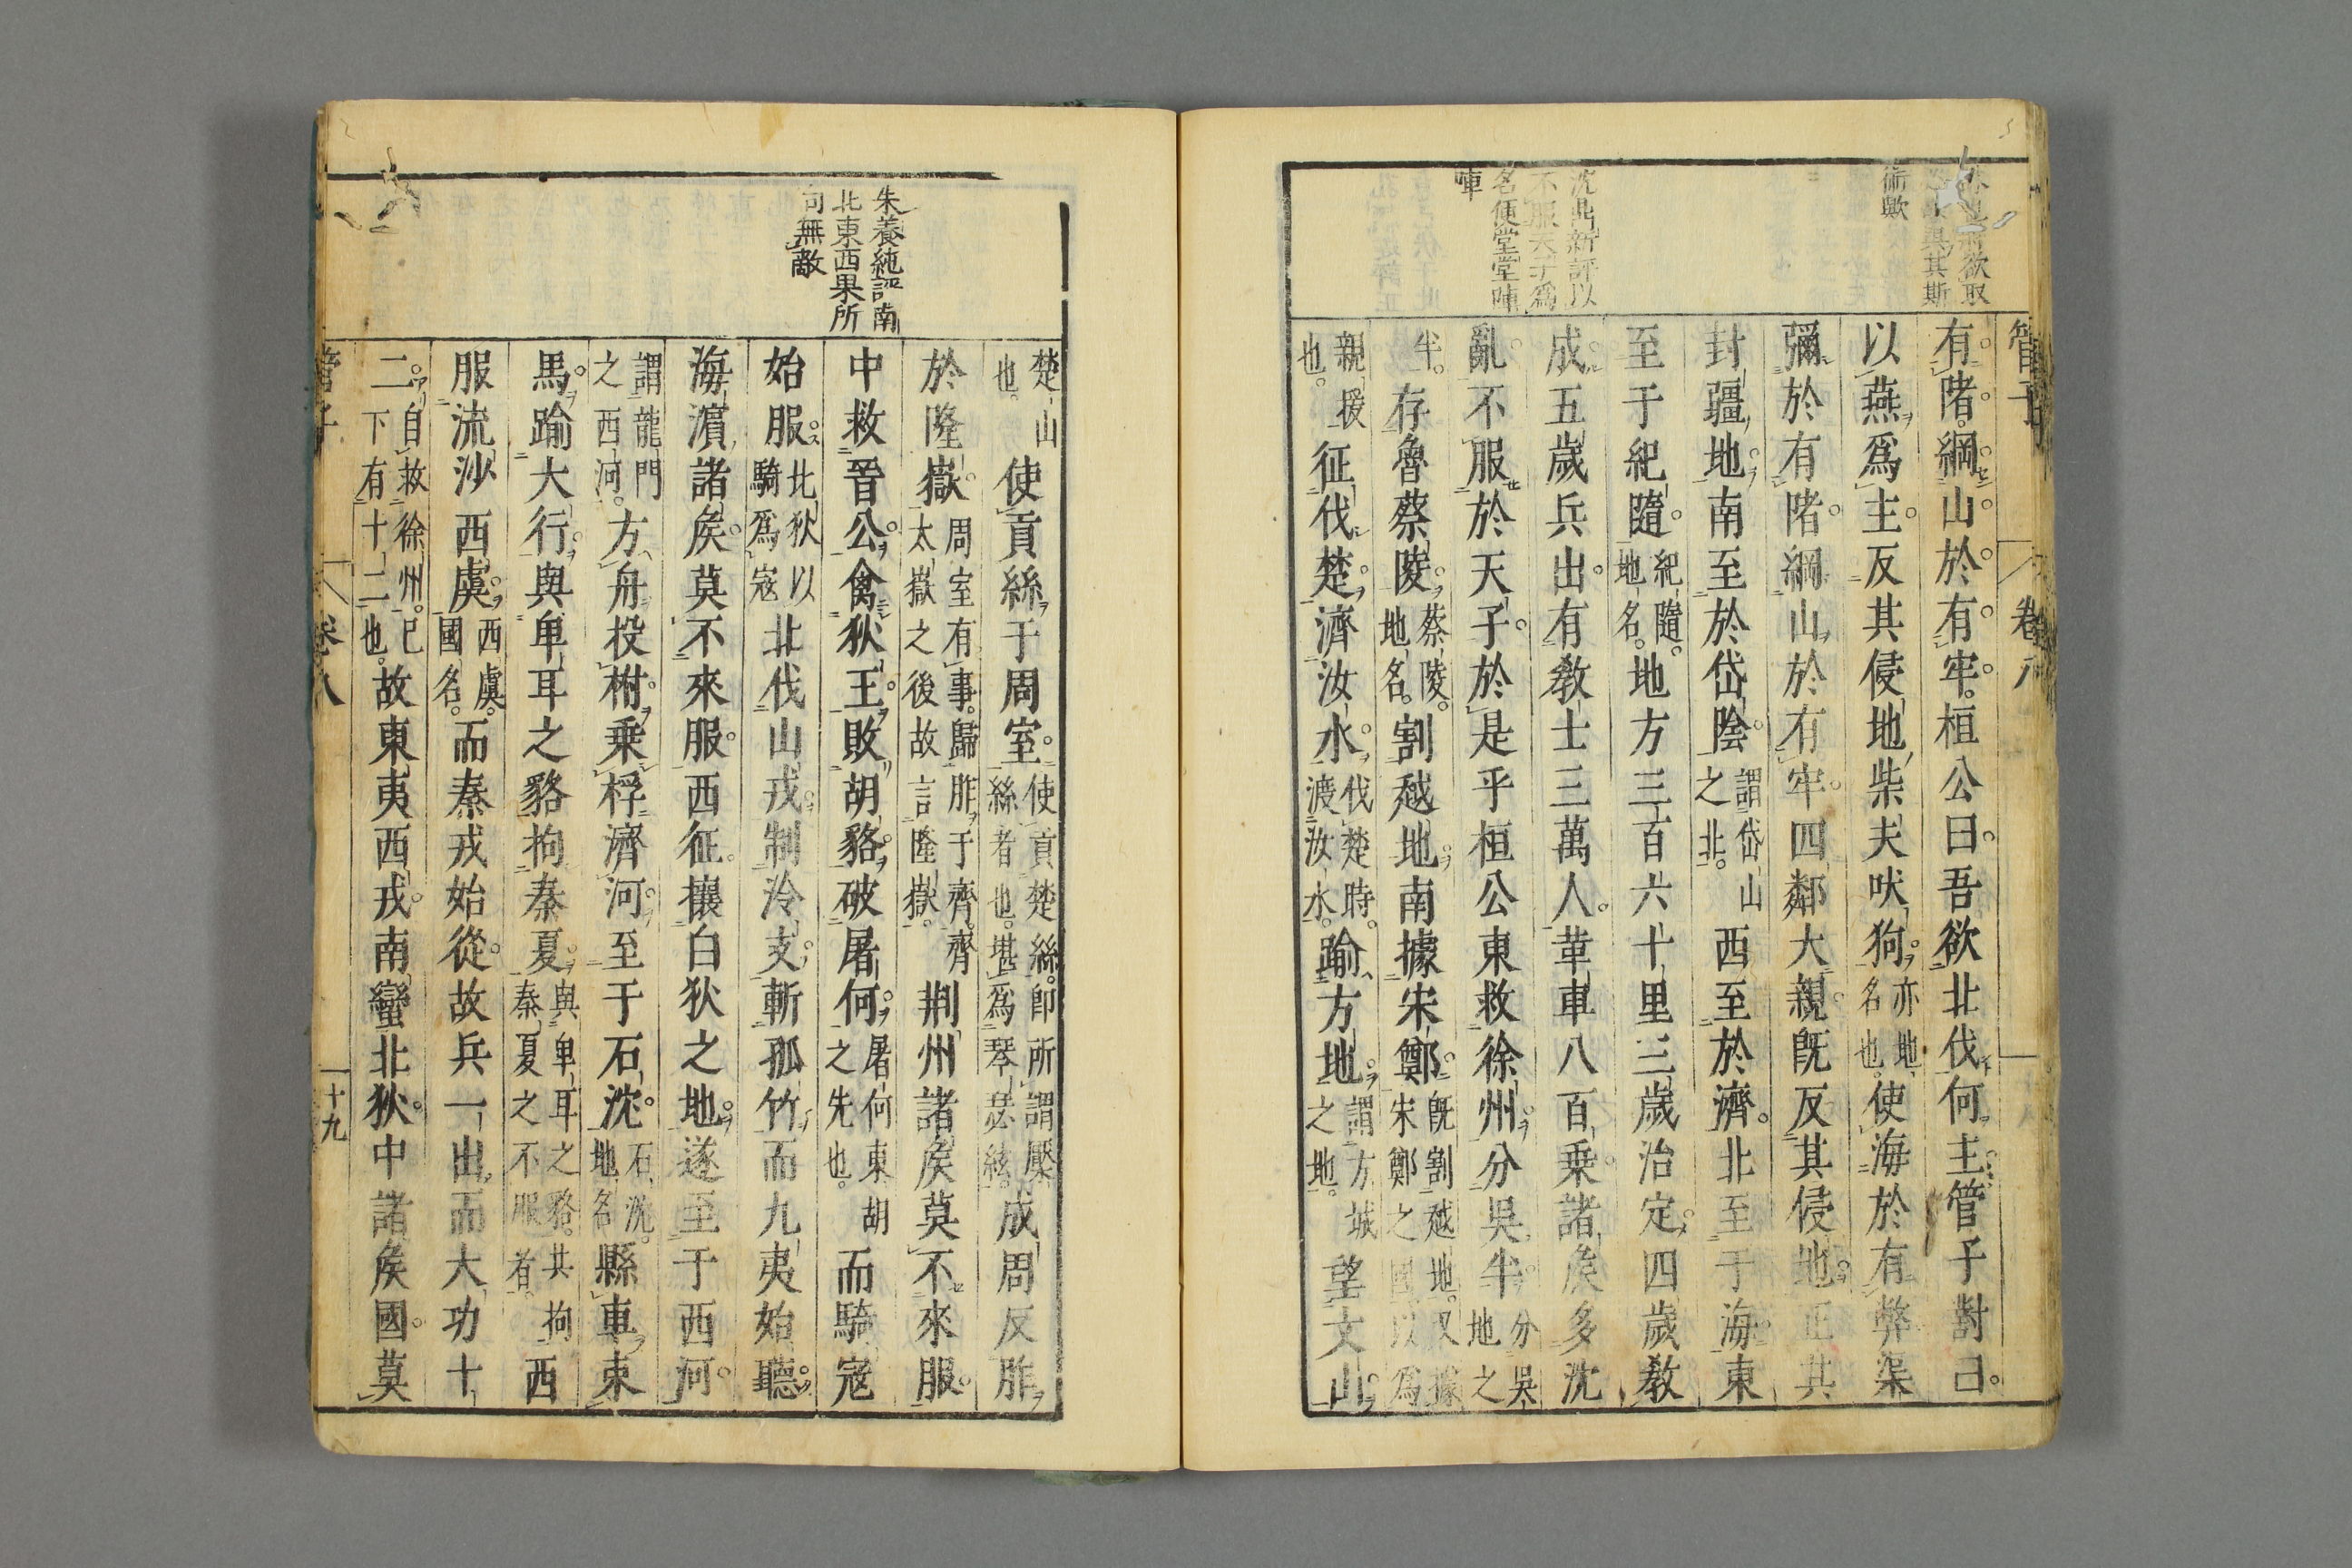 管子
卷八
術歟
有陼綱山於有牢桓公曰吾欲北伐何主管子對曰
以燕爲主反其侵地柴夫吠狗亦地名也使海於有弊渠
彌於有陼綱山於有牢四鄰大親既反其侵地正其
封疆地南至於岱陰謂岱山之北西至於濟北至于海東
至于紀隨紀隨地名地方三百六十里三歲治定四歲教
成五歲兵出有教士三萬人革車八百乗諸侯多沈
亂不服於天子於是乎桓公東救徐州分吳半分吳地之
半存魯蔡陵蔡陵地名割越地南據宋鄭既割越地又據宋鄭之國以爲
親援也征伐楚濟汝水伐楚時渡汝水踰方地謂方城之地望文山
沈鼎新評以
不服天子爲
名便堂堂陣
陣
楚山也使貢絲于周室使貢楚絲即所謂檿絲者也堪爲琴瑟絃成周反胙
於隆嶽周室有事歸胙于齊齊太嶽之後故言隆嶽荆州諸侯莫不來服
中救晉公禽狄王敗胡貉破屠何屠何東胡之先也而騎寇
始服北狄以騎爲寇北伐山戎制泠支斬孤竹而九夷始聽
海濵諸侯莫不來服西征攘白狄之地遂至于西河
謂龍門之西河方舟投柎乗桴濟河至于石沈石沈地名縣車束
馬踰大行與卑耳之貉拘秦夏與卑耳之貉共拘秦夏之不服者西
服流沙西虞西虞國名而秦戎始從故兵一出而大功十
二自救徐州已下有十二也故東夷西戎南蠻北狄中諸侯國莫
朱養純評南
北東西果所
向無敵
管子
卷八
十九